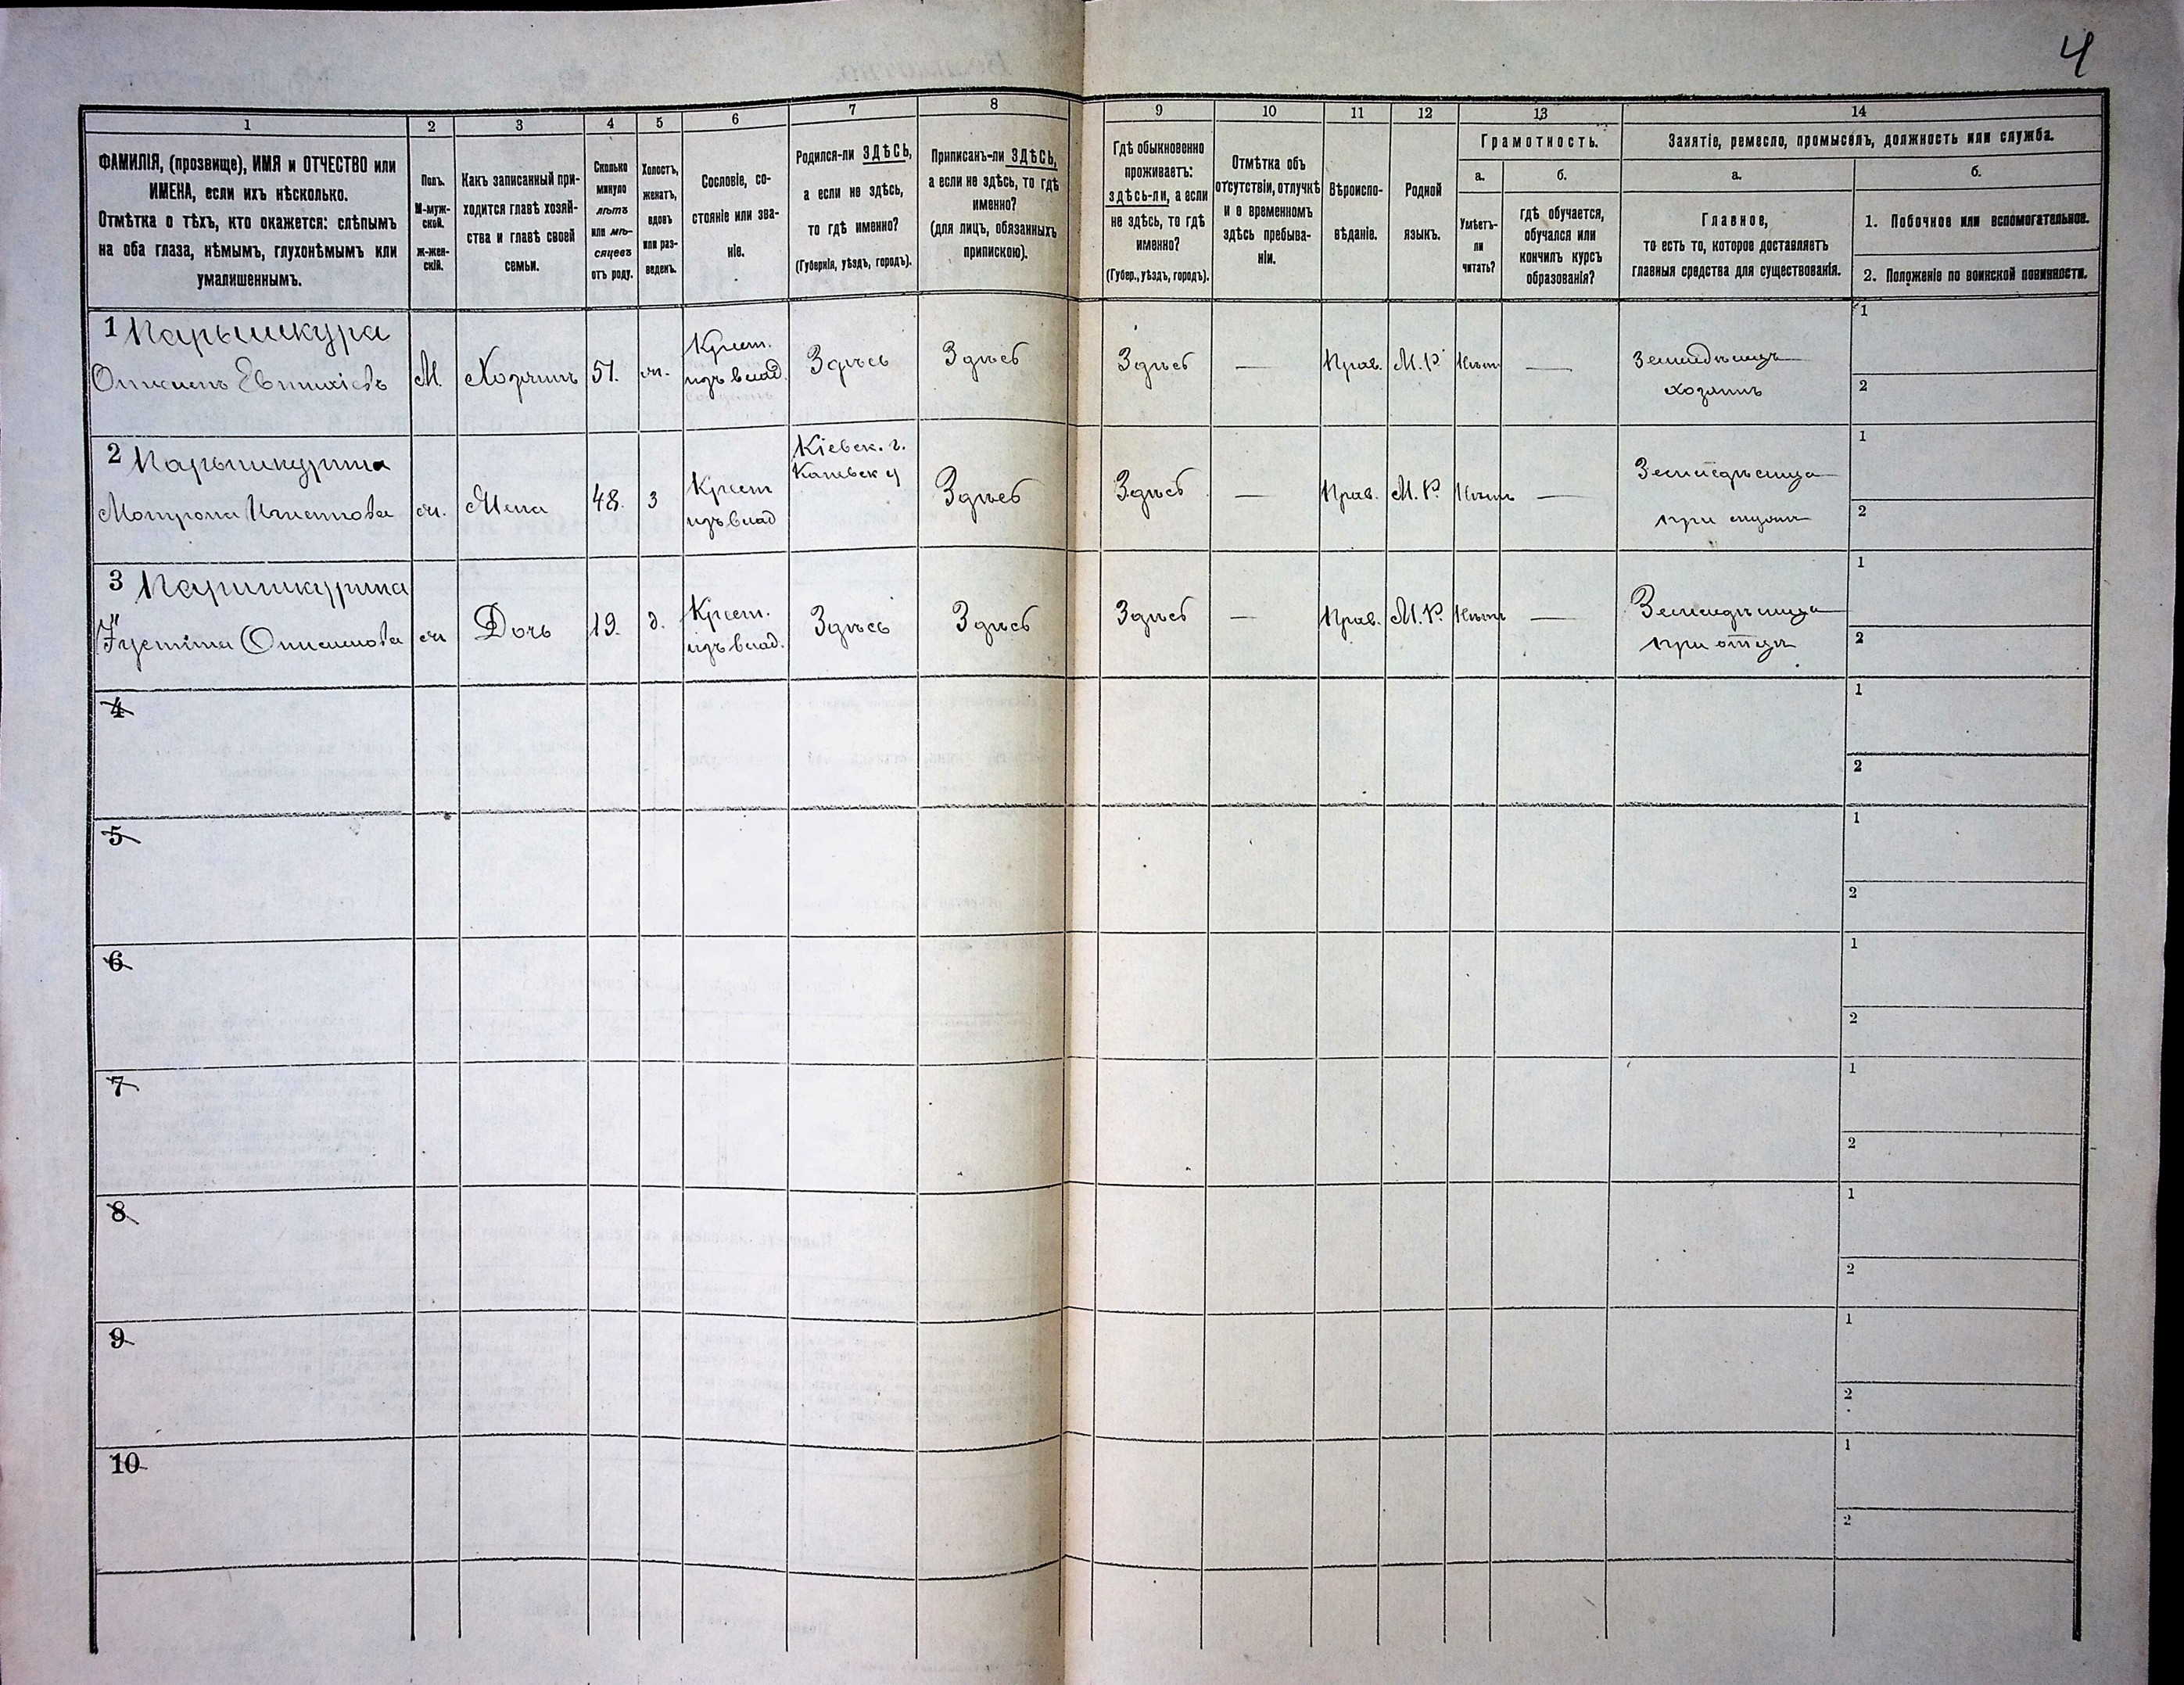 4
1 2 3 4 5 6 7 8 9 10 11 12 13 14
ФАМИЛІЯ, (прозвище), ИМЯ и ОТЧЕСТВО или
ИМЕНА, если ихъ нѣсколько.
Отмѣтка о тѣхъ, кто окажется: слѣпымъ
на оба глаза, нѣмымъ, глухонѣмымъ или
умалишеннымъ.
Полъ.
М-муж-
ской.
Ж-жен-
скій.
Какъ записанный при-
ходится главѣ хозяй-
ства и главѣ своей
семьи.
Сколько
минуло
лѣтъ
или мѣ-
сяцевъ
отъ роду.
Холостъ,
женатъ,
вдовъ
или раз-
веденъ.
Сословіе, со-
стояніе или зва-
ніе.
Родился-ли ЗДѢСЬ,
а если не здѣсь,
то гдѣ именно?
(Губернія, уѣздъ, городъ).
Приписанъ-ли ЗДѢСЬ,
а если не здѣсь, то гдѣ
именно?
(для лицъ, обязанныхъ
припискою).
Гдѣ обыкновенно
проживаетъ:
здѣсь-ли, а если
не здѣсь, то гдѣ
именно?
(Губер., уѣздъ, городъ).
Отмѣтка объ
отсутствіи, отлучкѣ
и о временномъ
здѣсь пребыва-
ніи.
Вѣроиспо-
вѣданіе.
Родной
языкъ.
Грамотность.
а.
Умѣетъ-
ли
читать?
б.
гдѣ обучается,
обучался или
кончилъ курсъ
образованія?
Занятіе, ремесло, промыселъ, должность или служба.
а.
Главное,
то есть то, которое доставляетъ
главныя средства для существованія.
б.
1. Побочное или вспомогательное.
2. Положеніе по воинской повинности.
1 Парышкура
Евтихіевъ
М.
Хозяинъ
51.
ж.
Крест.
изъ влад.
Здѣсь
Здѣсь
Здѣсь
—
Прав.
М. Р.
Нѣтъ
—
Земледѣлецъ
хозяинъ
1
2
2 Парышкурина
Мотрона Игнатова
ж.
Жена
48.
З
Крест
изъ влад
Кіевск. г.
Каневск у
Здѣсь
Здѣсь
—
Прав.
М. Р.
Нѣтъ
—
Земледѣлица
при мужѣ
1
2
3 Паришкурина
Устина Онисимова
ж
Дочь
19.
д.
Крест.
изъ влад.
Здѣсь
Здѣсь
Здѣсь
—
Прав.
М. Р.
Нѣтъ
—
Земледѣлица
при отцѣ
1
2
4
1
2
5
1
2
6
1
2
7
1
2
8
1
2
9
1
2
10
1
2